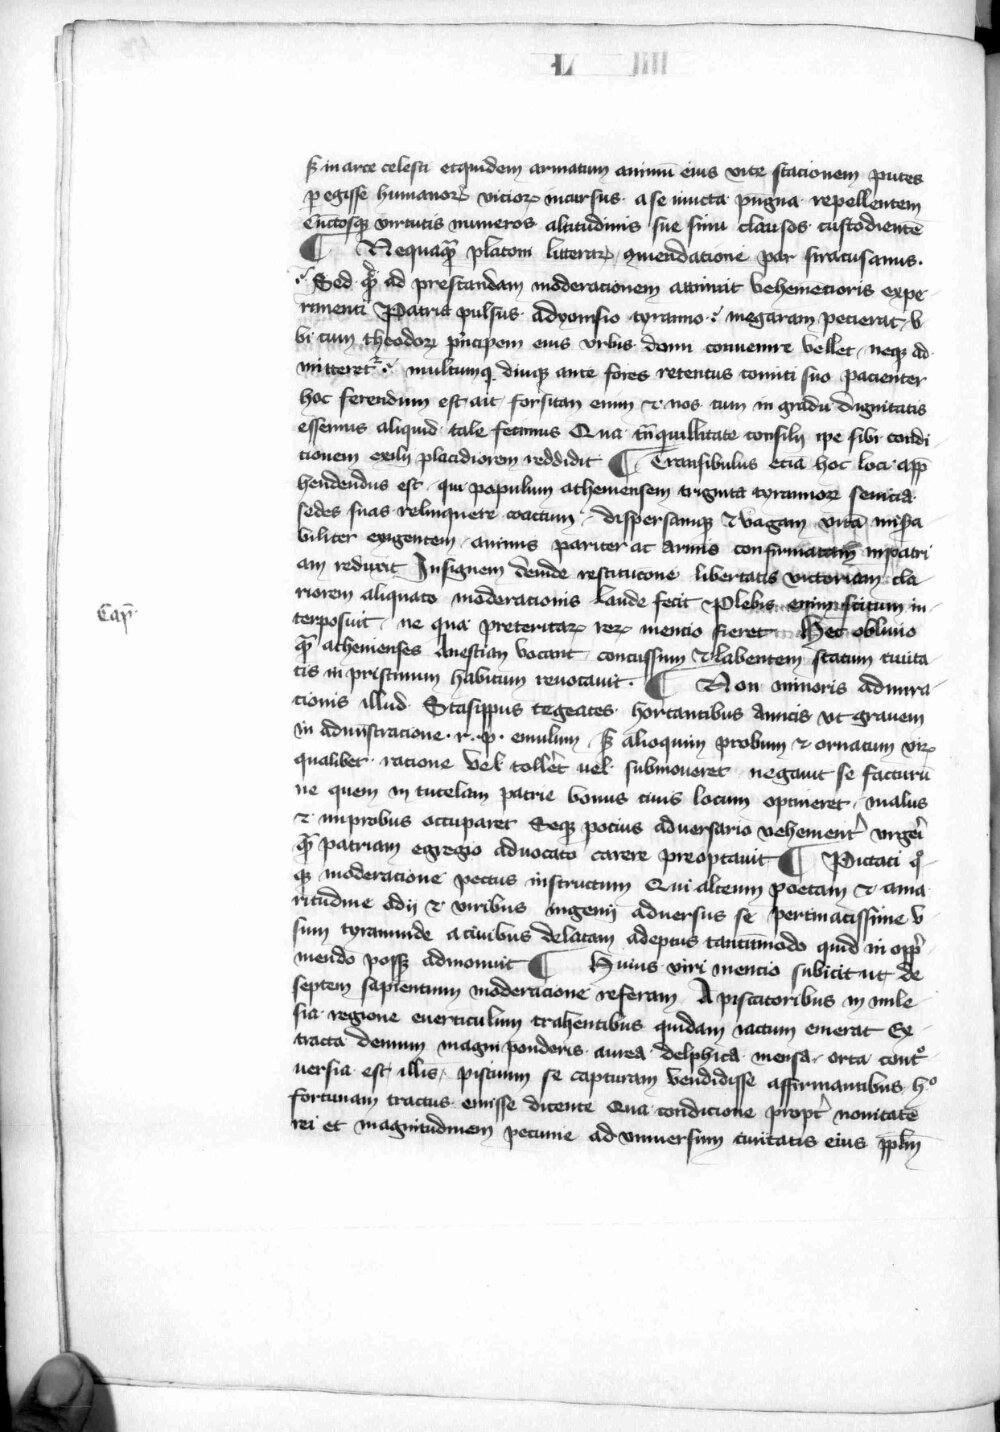 s; in arce celesti etquidem armatum animū eius vite stacionem putes
p egisse humanoꝝ vicioꝝ incursus a se invicta pugna repellentem
Cunctosqꝫ virtutis numeros altitudinis sue sinu clausos custodientē
¶ Nequaqȝ platoni litteraꝝ ꝯmendatione par siracusanus.
Sed qȝ ad prestandam moderationem attinuit vehemencioris expe-
rimenti Patria pulsus adyonisio tyranno megaram pecierat v
bi cum theodorꝝ p̄ncipem eius urbis domi convenire vellet neqꝫ ad
mitteretᷣ multumqꝫ diuqꝫ ante fores retentus comiti suo pacienter
hoc ferendum est ait forsitan enim ⁊ nos cum in gradu dignitatis
essemus aliquid tale fecimus Qua tͣnquillitate consilij ipe sibi condi
tionem exilij placidiorem reddidit ¶ Transibulus eciā hoc loci app̄
hendendus est qui populum atheniensem triginta tyrannoꝝ sevicia
sedes suas relinquere coactum dispersamqꝫ ⁊ vagam vitā misͣa
biliter exigentem animis pariter ac armis confirmatam in patri
am reduxit Insignem deinde restitucione libertatis victoriam cla
riorem aliquato moderacionis laude fecit Plebis enim scitum in
Cap̄
terposuit ne qua preteritaꝝ reꝝ mencio fieret Hec oblivio
qȝ athenienses Anestian vocant concussum ⁊ labentem statum civita
tis in pristinum habitum revocavit. ¶ Non minoris admira
cionis illud Stasippus tegeates hortantibus Amicis ut gravem
in adminiͣstracione r. p. emulum s; alioquin probum ⁊ ornatum viꝝ
qualibet racione vel tolleret vel submoveret negavit se facturū
ne quem in tutelam patrie bonus civis locum optineret malus
⁊ improbus occuparet Seqꝫ pocius adversario vehementͬ urgeri
qȝ patriam egregio advocato carere preoptavit ¶ Pictati qͦ
qꝫ moderacione pectus instructum Qui alceum poetam ⁊ ama
ritudine odij ⁊ viribus ingenij adversus se pertinacissime v
sum tyrannide a civibus delatam adeptus tantūmodo quid in opp̄
mendo possꝫ admonuit ¶ Huius viri mencio subicit ut de
septem sapientum moderacione referam A piscatoribus in mile
sia regione everticulum trahentibus quidam iactum emerat Ex-
tracta demum magni ponderis aurea delphica mensa orta contͦ
versia est illis piscium se capturam vendidisse affirmantibus hͦ
fortunam tractus emisse dicente Qua condicione proptͬ novitatē
rei et magnitudinem pecunie ad universum civitatis eius pp̄lm